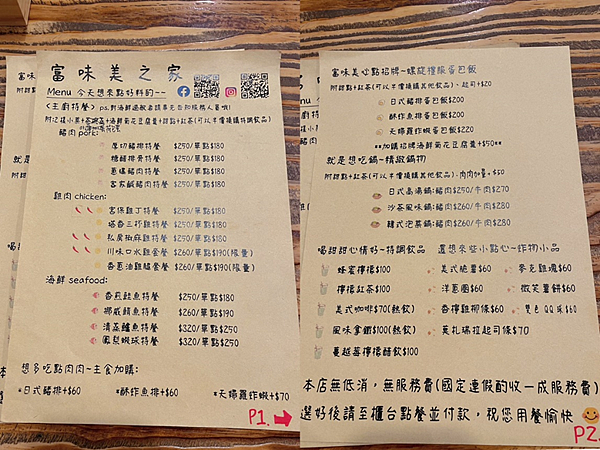 富味美之家
Menu 今天想來點好料的~~
<主廚特餐> ps.對海鮮過敏者請事先告知服務人員哦!
豬肉 pork:
厚切豬排特餐 $250/單點$180
糖醋排骨特餐 $250/單點$180
蔥爆豬肉特餐 $250/單點$180
客家鹹豬肉特餐 $250/單點$180
雞肉 chicken:
宮保雞丁特餐 $250/單點$180
塔香三杯雞特餐 $250/單點$180
私房椒麻雞特餐 $250/單點$180
川味口水雞特餐 $260/$190(限量)
香蔥油雞腿特餐 $260/$190(限量)
海鮮 seafood:
香煎鮭魚特餐 $250/單點$180
挪威鯖魚特餐 $260/單點$190
清蒸鱸魚特餐 $320/單點$250
鳳梨蝦球特餐 $320/單點$250
想多吃點肉肉~主食加購:
*日式豬排+$60 *酥作魚排+$60 *天婦羅炸蝦+$70
P1.
富味美心點招牌~螺旋摟飯蛋包飯
附甜點+紅茶(可以半價換購其他飲品)、起司+$20
日式豬排蛋包飯$200
酥作魚排蛋包飯$200
天婦炸蝦蛋包飯$220
**加購招牌海鮮菊花豆腐羹+$50**
就是想吃鍋~精緻鍋物
附甜點+紅茶(可以半價換購其他飲品)、肉肉加量+$50
日式高湯鍋:豬肉$250/牛肉$270
沙茶風味鍋:豬肉$260/牛肉$280
韓式泡菜鍋:豬肉$260/牛肉$280
喝甜甜心情好~特調飲品 還想來些小點心~炸物小品
蜂蜜檸檬$100 美式脆薯$60 麥克雞塊$60
檸檬紅茶$100 洋蔥圈$60 微笑薯餅$60
美式咖啡$70(熱飲) 香檸雞柳條$60 雙色QQ球$60
風味拿鐵$100(熱飲) 莫札瑞拉起司條$70
蔓越莓檸檬醋飲$100
本店無低消,無服務費(國定連假酌收一成服務費)
選好後請至櫃台點餐並付款,祝您用餐愉快
P2.